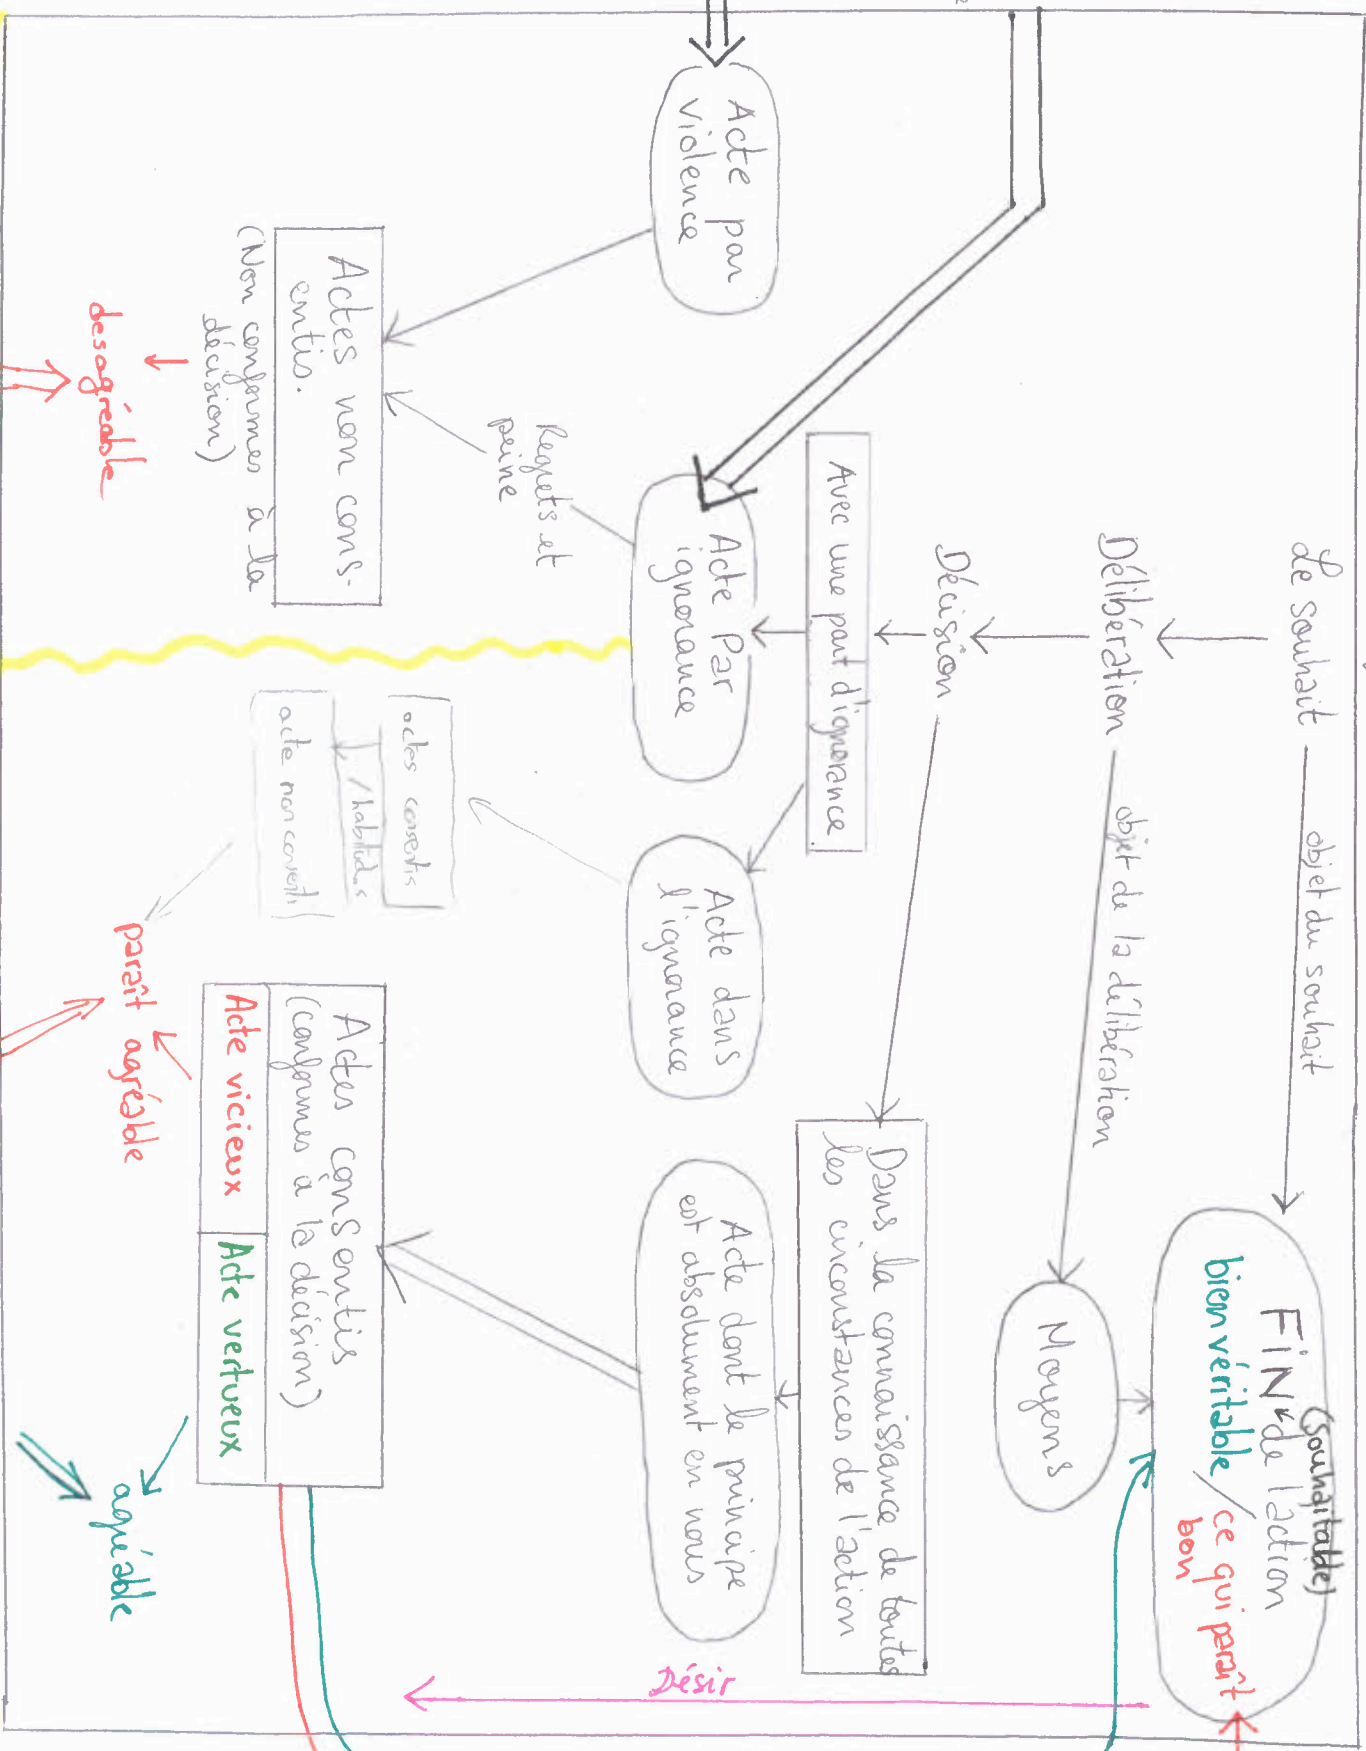 Le souhait
objet du souhait
(souhaitable)
FIN de l'action
bien véritable / ce qui paraît
bon
Délibération
objet de la délibération
Moyens
Décision
Avec une part d'ignorance
Dans la connaissance de toutes
les circonstances de l'action
Désir
Acte par
violence
Acte Par
ignorance
Acte dans
l'ignorance
Acte dont le principe
est absolument en nous
Regrets et
peine
Actes non cons-
entis.
(Non conformes à la
décision)
actes consentis
/habitudes
acte non consenti
Actes consentis
(conformes à la décision)
Acte vicieux
Acte vertueux
desagréable
paraît agréable
agréable